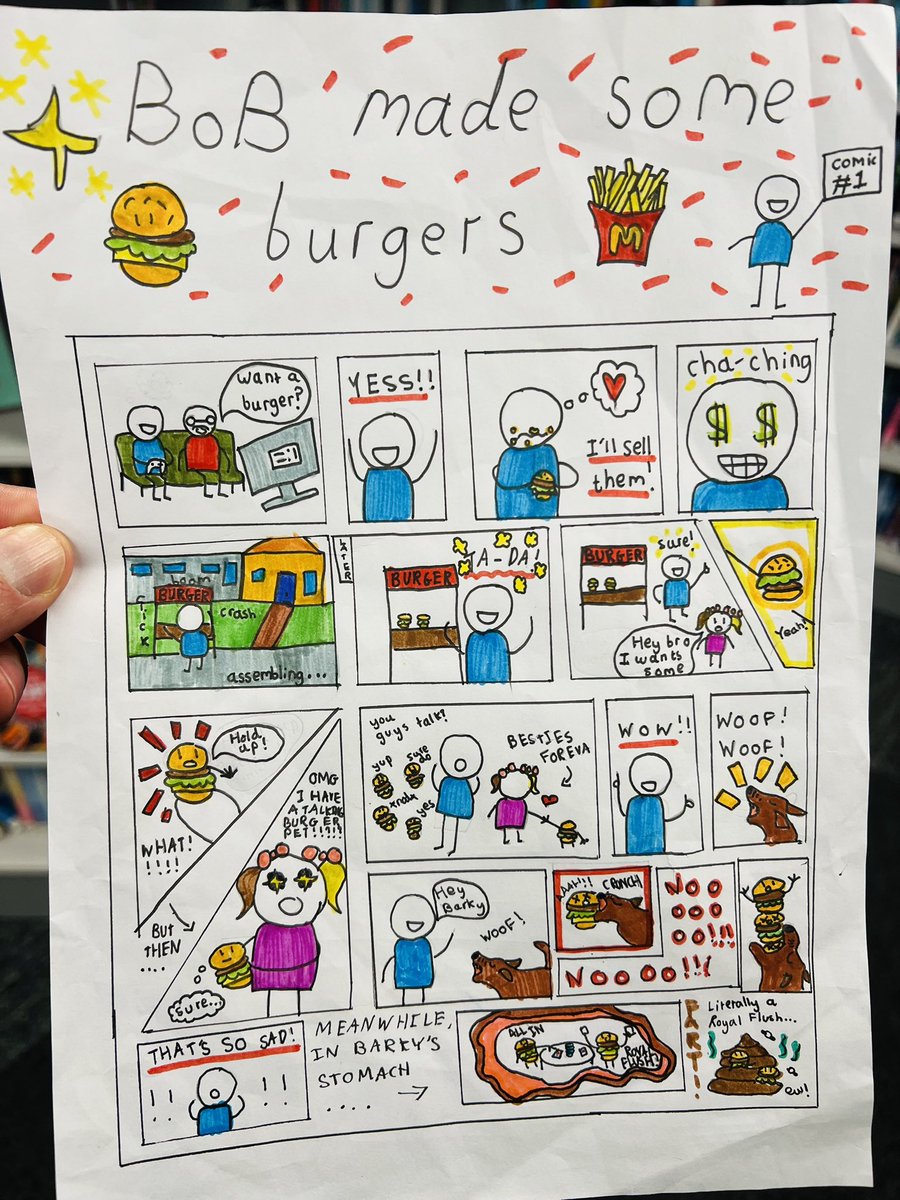 BoB made some
burgers
comic
#1
M
want a
burger?
YESS!!
I'll sell
them!
cha-ching
$ $
boom
BURGER
CLICK
crash
assembling...
LATER
BURGER
TA-DA!
BURGER
sure!
Hey bro
I wants
some
Yeah!
Hold
up!
WHAT!
!!!!
BUT
THEN
....
OMG
I HAVE
A TALKING
BURGER
PET!!!?!?
sure...
you
guys talk?
yup
sure
do
yes
BESTIES
FOREVA
WOW!!
WOOF!
WOOF!
Hey
Barky
WOOF!
AAH!!!
CRUNCH!
NOO
OOO
OO!!!
NOOOO!!!
THAT'S SO SAD!
! ! ! !
MEANWHILE,
IN BARKY'S
STOMACH
....
ALL IN
ROYAL
FLUSH!
FART!
Literally a
Royal Flush...
ew!